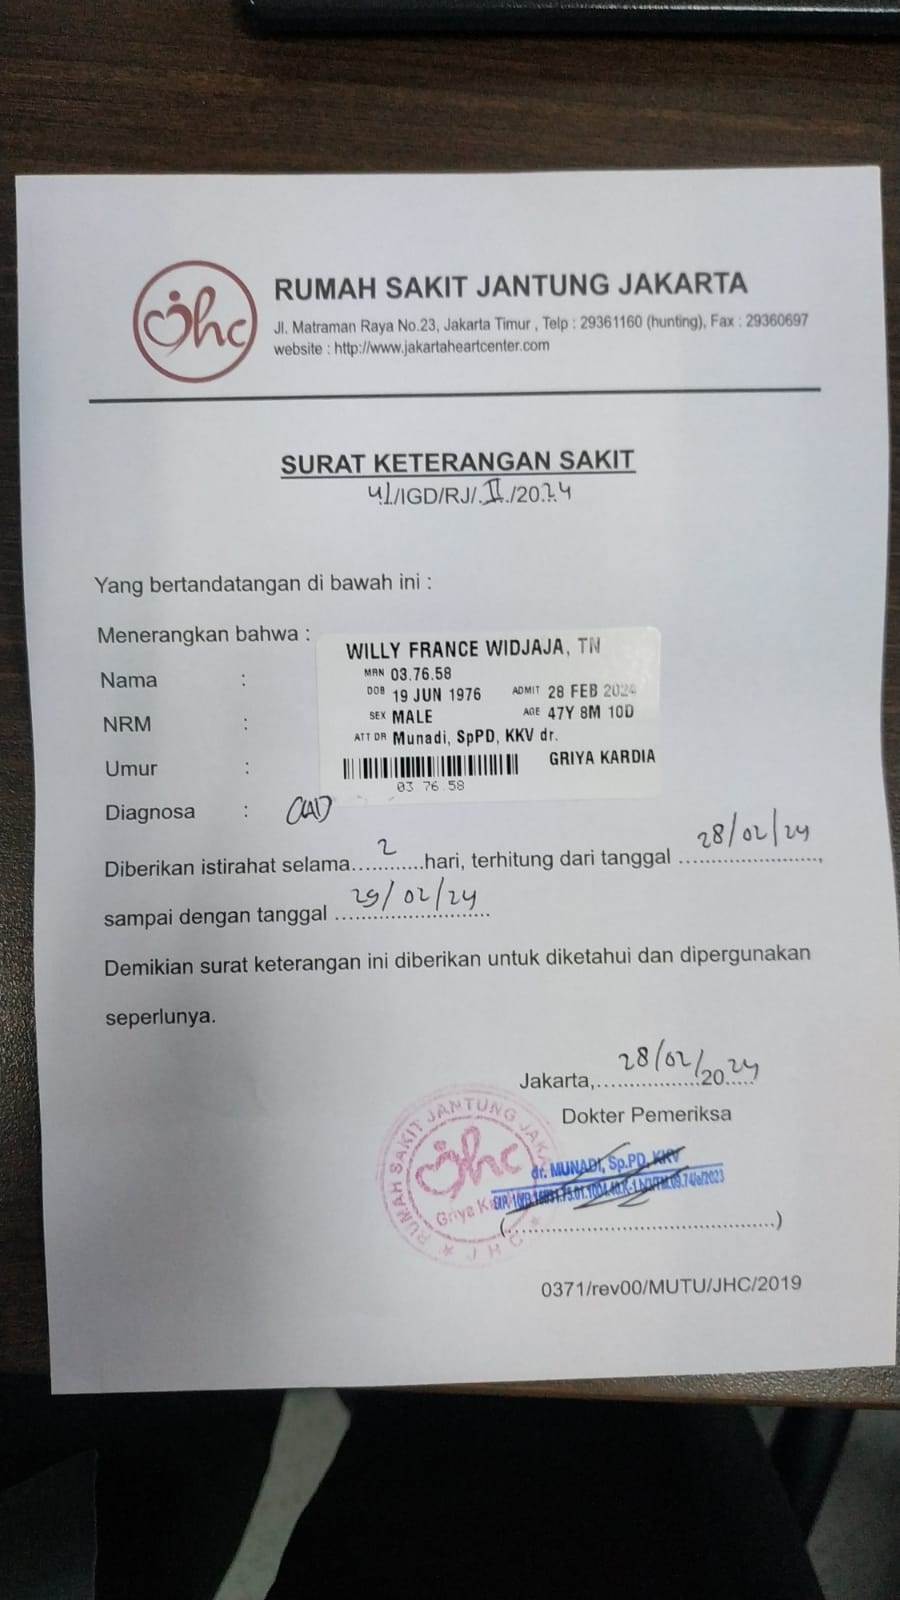 Jhc
RUMAH SAKIT JANTUNG JAKARTA
Jl. Matraman Raya No.23, Jakarta Timur , Telp : 29361160 (hunting), Fax : 29360697
website : http://www.jakartaheartcenter.com
SURAT KETERANGAN SAKIT
41/IGD/RJ/.II./2024
Yang bertandatangan di bawah ini :
Menerangkan bahwa :
WILLY FRANCE WIDJAJA, TN
MRN 03.76.58
Nama :
DOB 19 JUN 1976 ADMIT 28 FEB 2024
SEX MALE AGE 47Y 8M 10D
NRM :
ATT DR Munadi, SpPD, KKV dr.
GRIYA KARDIA
Umur :
03 76.58
Diagnosa : CAD
Diberikan istirahat selama....2.......hari, terhitung dari tanggal 28/02/24,
sampai dengan tanggal 29/02/24
Demikian surat keterangan ini diberikan untuk diketahui dan dipergunakan
seperlunya.
Jakarta, 28/02/2024
Dokter Pemeriksa
RUMAH SAKIT JANTUNG JAKA
Jhc
dr. MUNADI, Sp.PD, KKV
Griya
JHC
(..........................................)
0371/rev00/MUTU/JHC/2019